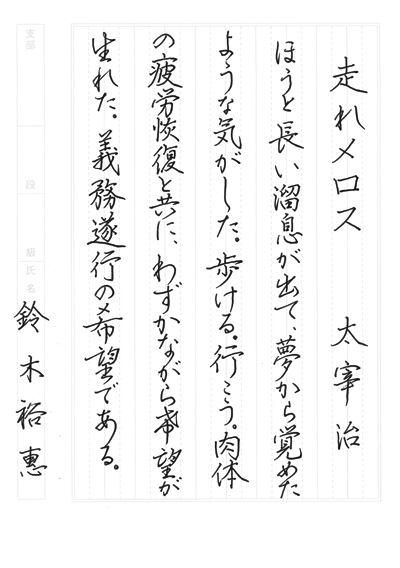 走れメロス 太宰治
ほうと長い溜息が出て、夢から覚めた
ような気がした。歩ける。行こう。肉体
の疲労恢復と共に、わずかながら希望が
生れた。義務遂行の希望である。
支部
段
級
氏名
鈴木裕惠